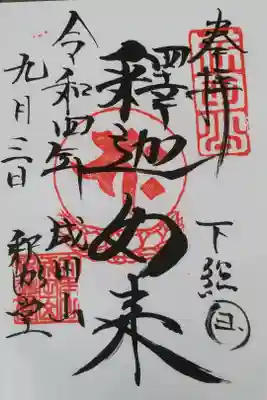 奉拝
下総国
釋迦如来
令和四年
九月三日
成田山
釈迦堂